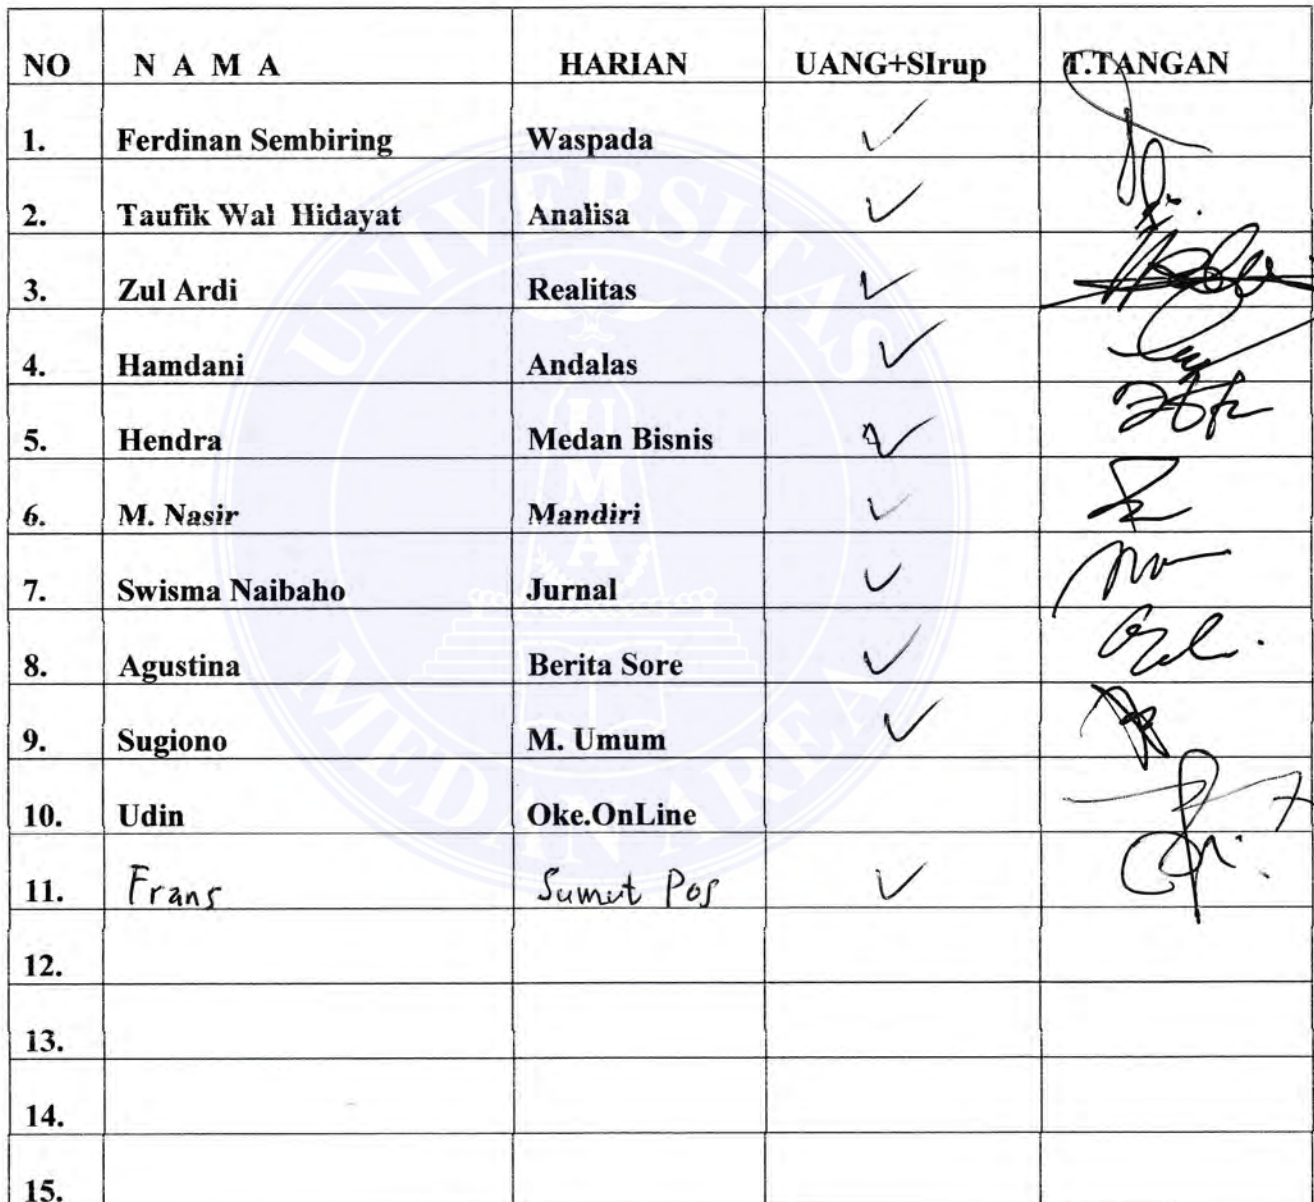 NO N A M A HARIAN UANG+SIrup T.TANGAN
1. Ferdinan Sembiring Waspada ✓
2. Taufik Wal Hidayat Analisa ✓
3. Zul Ardi Realitas ✓
4. Hamdani Andalas ✓
5. Hendra Medan Bisnis ✓
6. M. Nasir Mandiri ✓
7. Swisma Naibaho Jurnal ✓
8. Agustina Berita Sore ✓
9. Sugiono M. Umum ✓
10. Udin Oke.OnLine
11. Frans Sumut Pos ✓
12.
13.
14.
15.
UNIVERSITAS
UMA
MEDAN AREA